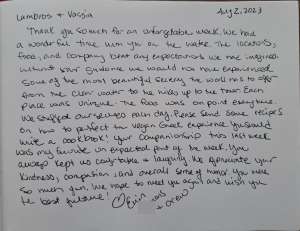 Lambros + Vassia
Aug 2, 2023
Thank you so much for an unforgettable week. We had
a wonderful time with you on the water. The locations,
food, and company beat any expectations we had imagined.
Without your guidance we would not have experienced
some of the most beautiful scenery the world has to offer
from the clear water to the hikes up to the town. Each
place was unique. The food was on point everytime.
We stuffed ourselves each day. Please send some recipes
on how to perfect the vegan Greek experience. You should
write a cookbook! Your companionship this last week
was my favorite un expected part of the week. You
always kept us comfortable + laughing. We appreciate your
kindness, compassion, and overall sense of humor. You were
so much fun. We hope to meet you again and wish you
the best future!
Erin
+ Drew